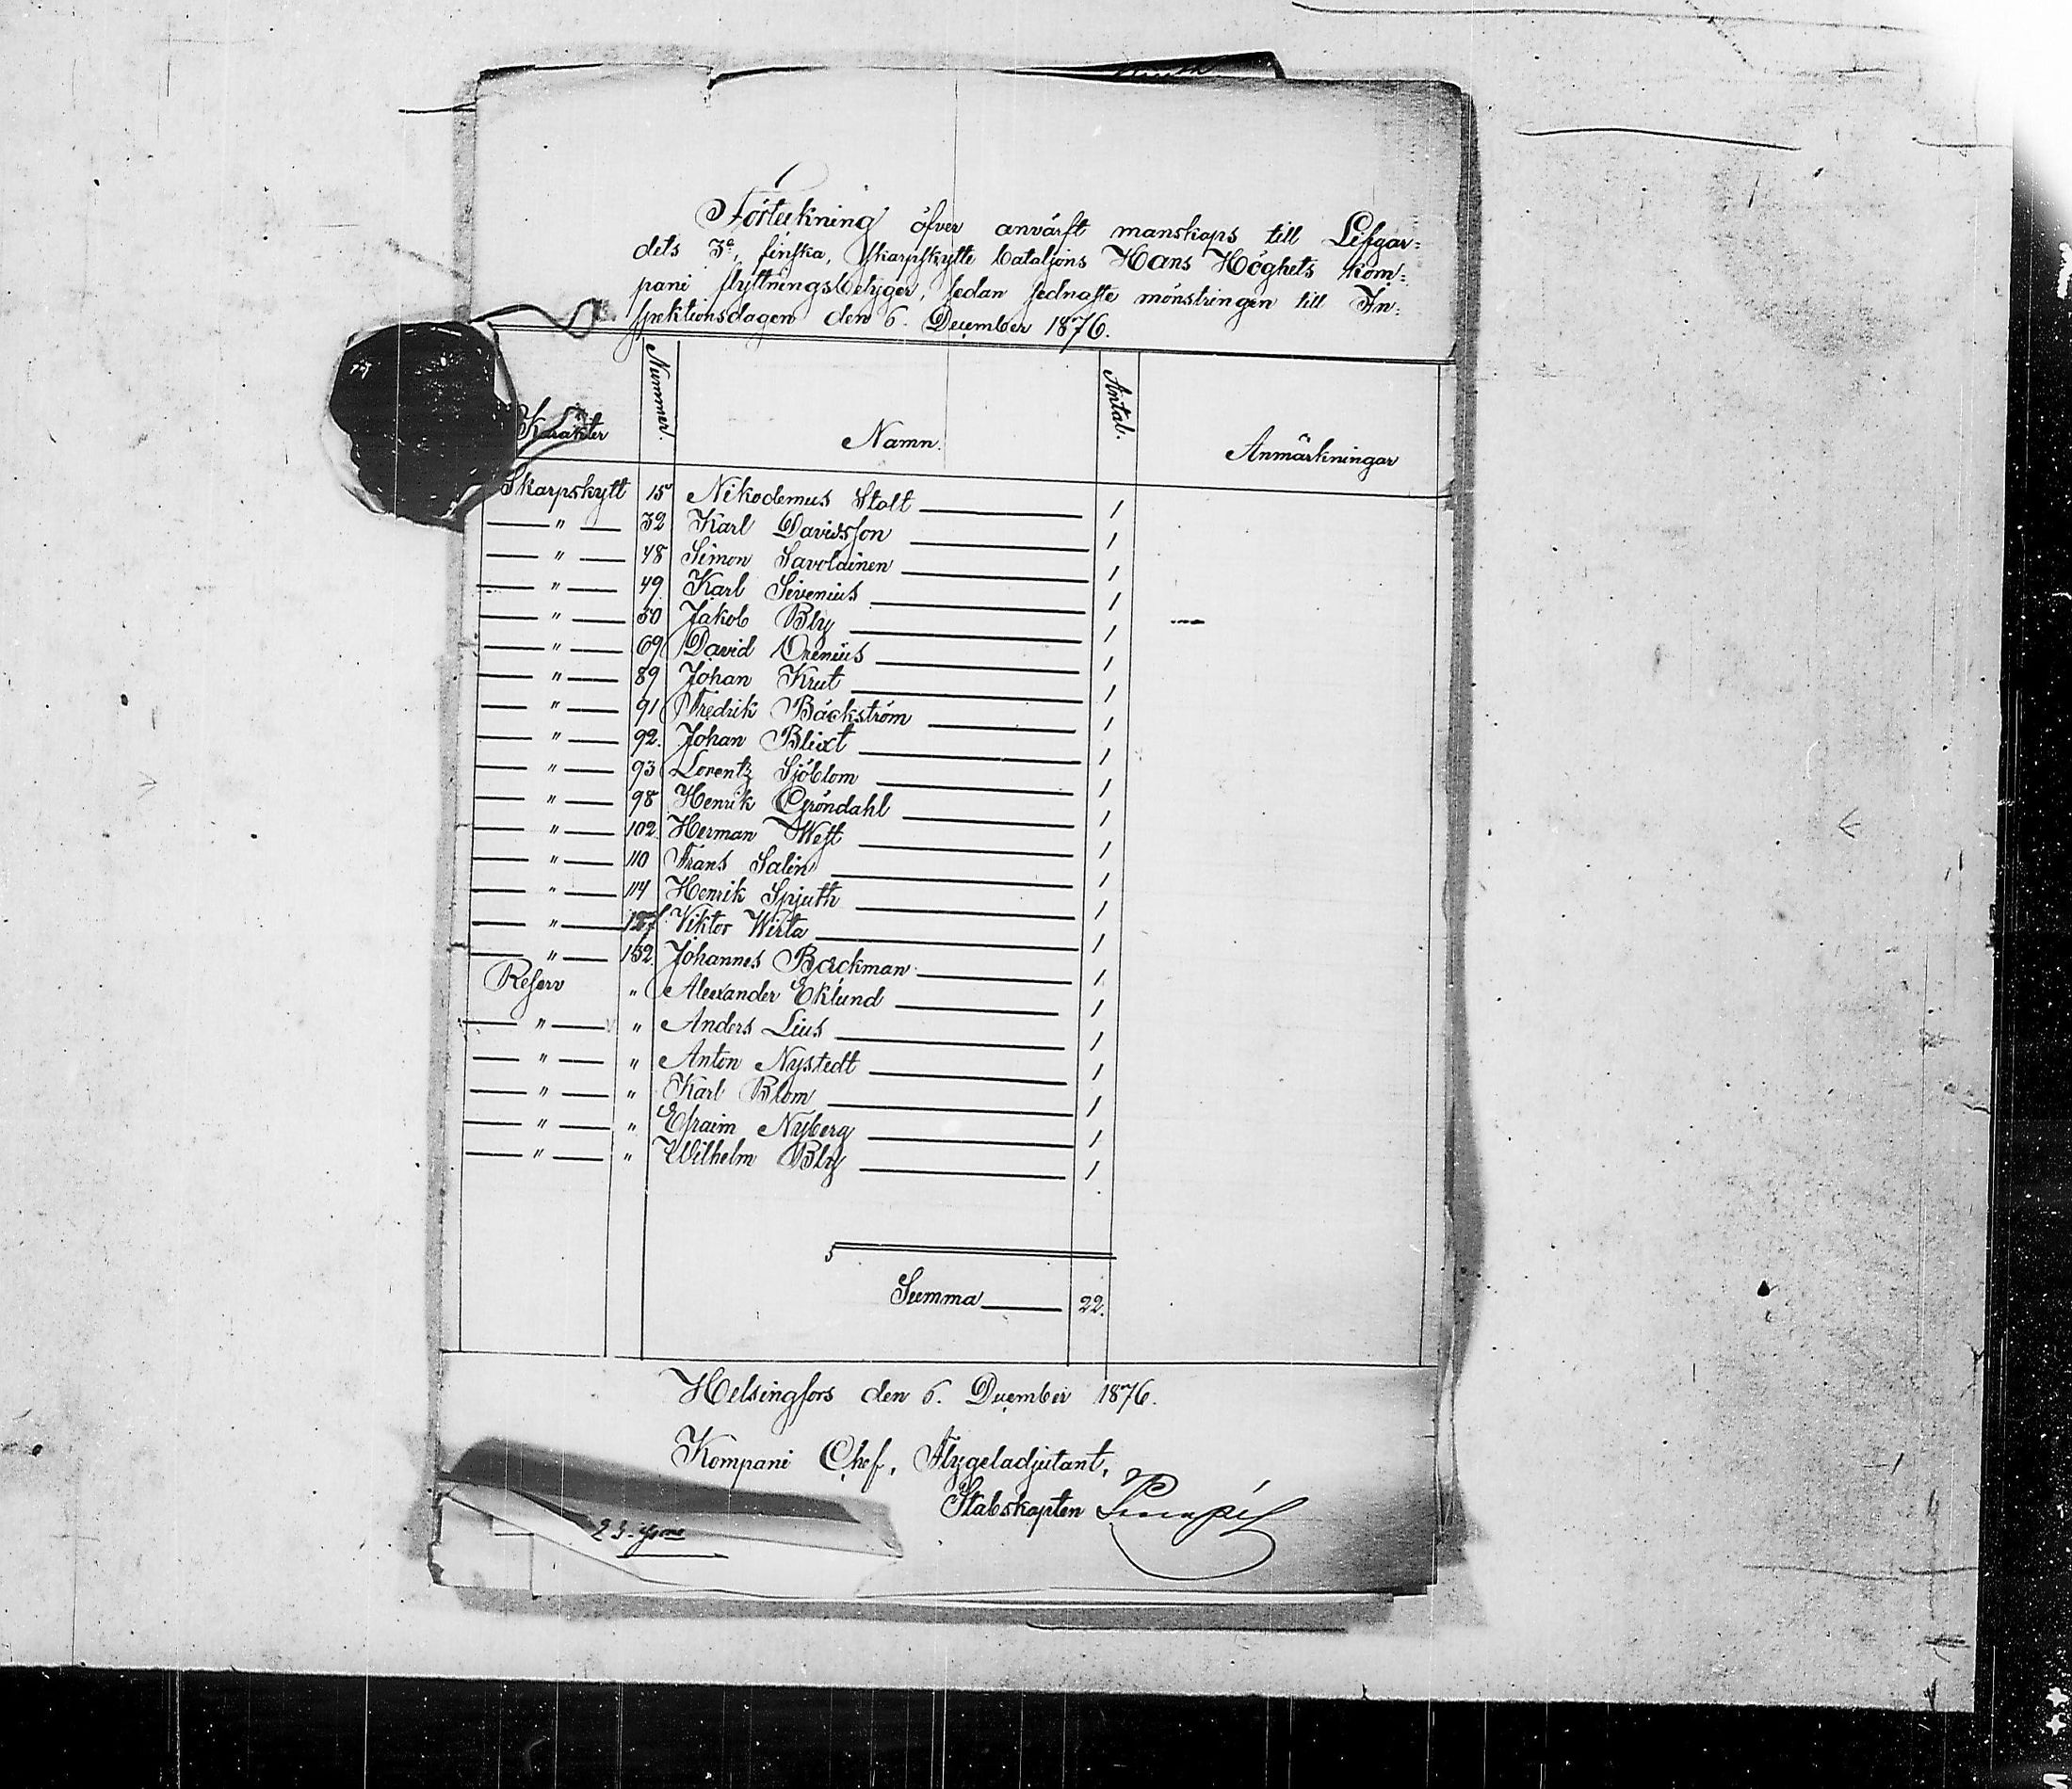 Förteckning öfver anvärft manskaps till Lifgar=
dets 3e, finska, skarpskytte bataljons Hans Höghets kom=
pani flyttningsbetyger, sedan sednaste mönstringen till In=
spektionsdagen den 6. December 1876.
Karakter Nummer. Namn. Antal. Anmärkningar
Skarpskytt 15 Nikodemus Stolt 1
" 32 Karl Davidsson 1
" 48 Simon Savolainen 1
" 49. Karl Sivenius 1
" 50 Jakob Bly 1
" 69 David Orenius 1
" 89 Johan Krut 1
" 91 Fredrik Bäckström 1
" 92. Johan Blixt 1
" 93 Lorentz Sjöblom 1
" 98 Henrik Gröndahl 1
" 102. Herman West 1
" 110 Frans Salin 1
" 114 Henrik Spjuth 1
" Viktor Wirta 1
" 152. Johannes Backman 1
Reserv " Alexander Eklund 1
" " Anders Lius 1
" " Anton Nystedt 1
" " Karl Blom 1
" " Efraim Nyberg 1
" " Wilhelm Bly 1
Summa 22.
Helsingfors den 6. December 1876.
Kompani Chef, Flygeladjutant,
Stabskapten